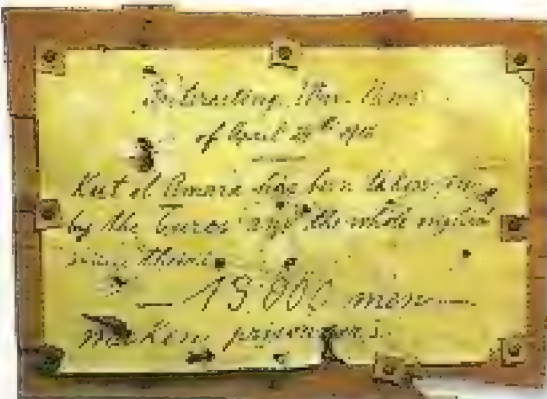 Interesting War-News
of April 29th 1916
Kut el Amara has been taken in
by the Turcs and the whole english
therein
— 13.000 men —
maken prisoners.